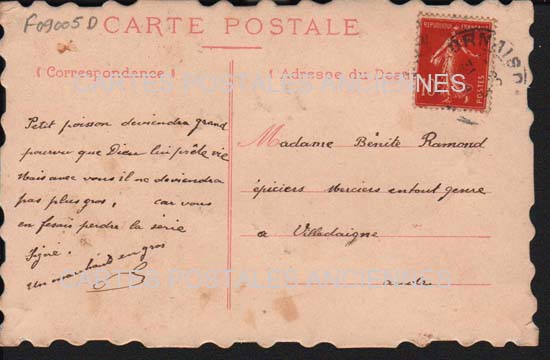 F09005D
CARTE POSTALE
(Correspondance)
(Adresse du
REPUBLIQUE FRANÇAISE
10
CARTES POSTALES ANCIENNES
Petit poisson deviendra grand
pourvu que Dieu lui prête vie
Mais avec vous il ne deviendra
pas plus gros, car vous
en fesais perdre la série
Signé.
Un marchand en gros
Madame Bénite Ramond
épiciers merciers en tout genre
a Villedaigne
aude
CARTES POSTALES ANCIENNES